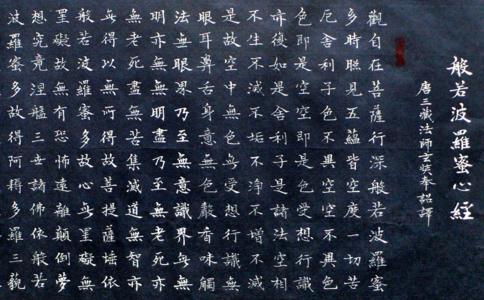 般若波羅蜜心經
唐三藏法師玄奘奉詔譯
觀自在菩薩行深般若波羅蜜
多時照見五蘊皆空度一切苦
厄舍利子色不異空空不異色
色即是空空即是色受想行識
亦復如是舍利子是諸法空相
不生不滅不垢不淨不增不減
是故空中無色無受想行識無
眼耳鼻舌身意無色聲香味觸
法無眼界乃至無意識界無無
明亦無無明盡乃至無老死亦
無老死盡無苦集滅道無智亦
無得以無所得故菩提薩埵依
般若波羅蜜多故心無罣礙無
罣礙故無有恐怖遠離顛倒夢
想究竟涅槃三世諸佛依般若
波羅蜜多故得阿耨多羅三藐